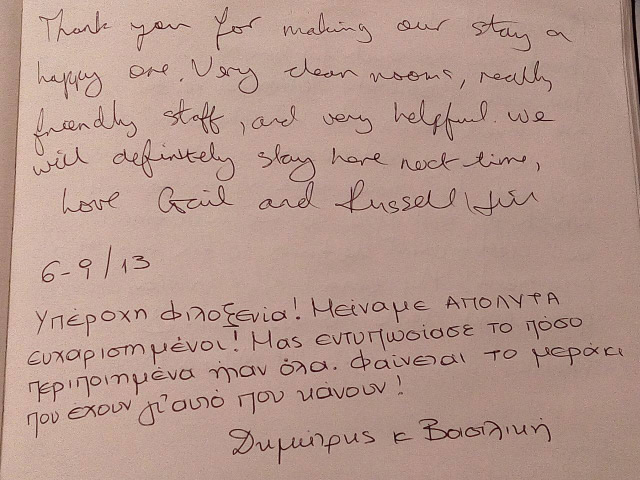 Thank you for making our stay a
happy one. Very clean rooms, really
friendly staff, and very helpful. we
will definitely stay here next time,
Love Gail and Russell
6-9/13
Υπέροχη φιλοξενία! Μείναμε ΑΠΟΛΥΤΑ
ευχαριστημένοι! Μας εντυπωσίασε το πόσο
περιποιημένα ήταν όλα. Φαίνεται το μεράκι
που έχουν γι'αυτό που κάνουν!
Δημήτρης κ Βασιλική